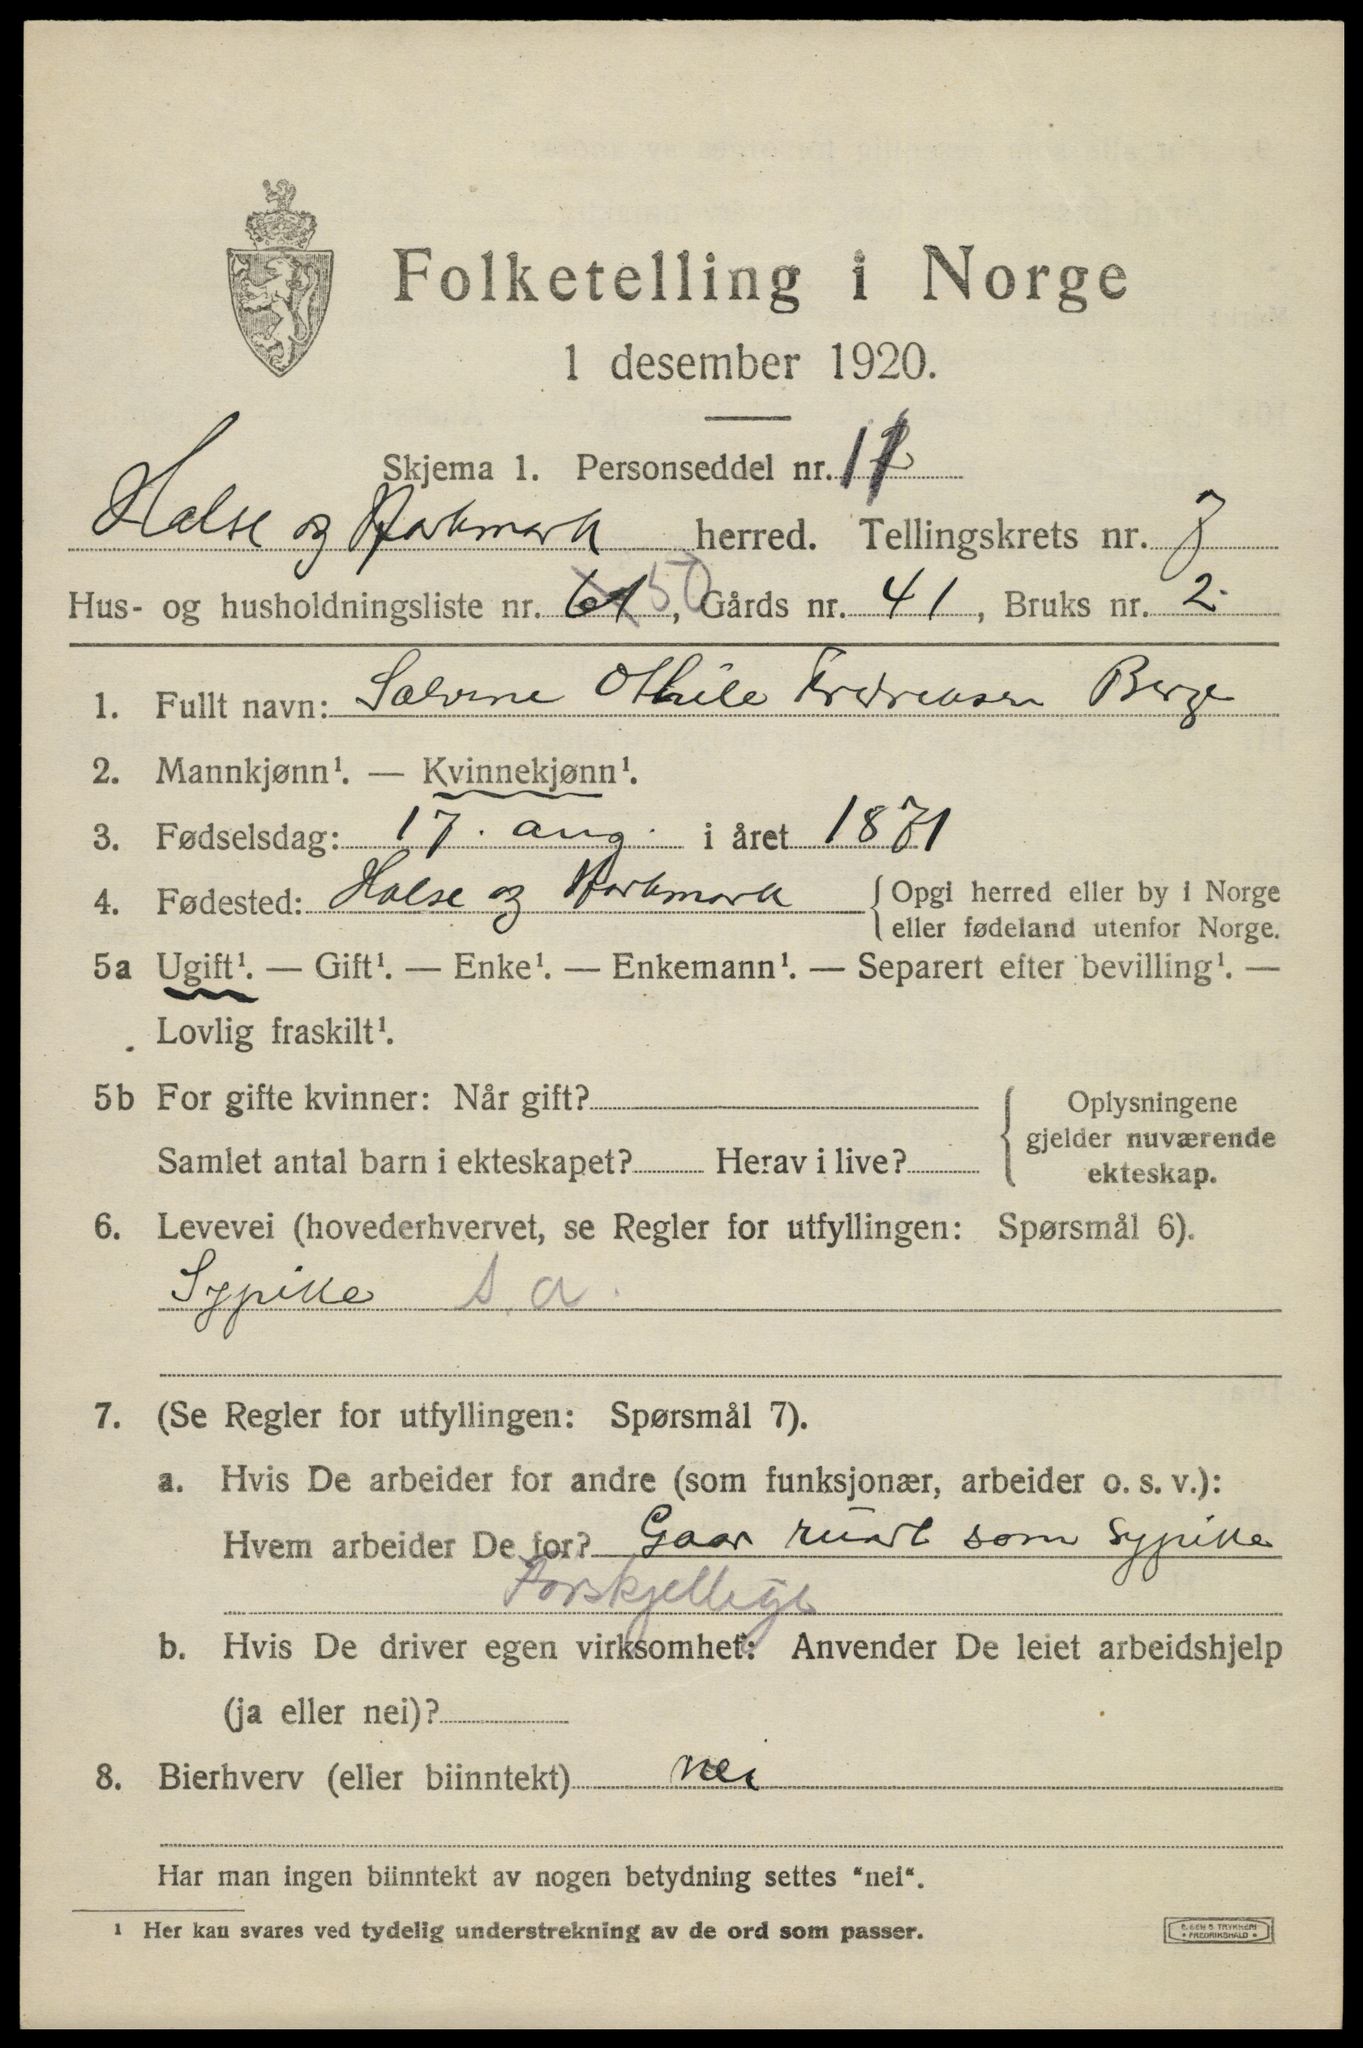 Folketelling i Norge
1 desember 1920.
Skjema 1. Personseddel nr.
Halse og Harkmark herred. Tellingskrets nr. 7
Hus- og husholdningsliste nr. 61 50, Gårds nr. 41, Bruks nr. 2.
1. Fullt navn: Salvine Othile Fredriksen Berge
2. Mannkjønn¹. — Kvinnekjønn¹.
3. Fødselsdag: 17. aug. i året 1871
4. Fødested: Halse og Harkmark { Opgi herred eller by i Norge
eller fødeland utenfor Norge.
5a Ugift¹. — Gift¹. — Enke¹. — Enkemann¹. — Separert efter bevilling¹. —
Lovlig fraskilt¹.
5b For gifte kvinner: Når gift?
Samlet antal barn i ekteskapet? Herav i live?
{ Oplysningene
gjelder nuværende
ekteskap.
6. Levevei (hovederhvervet, se Regler for utfyllingen: Spørsmål 6).
Sypike s. a.
7. (Se Regler for utfyllingen: Spørsmål 7).
a. Hvis De arbeider for andre (som funksjonær, arbeider o. s. v.):
Hvem arbeider De for? Gaar rundt som sypike
Forskjellige
b. Hvis De driver egen virksomhet: Anvender De leiet arbeidshjelp
(ja eller nei)?
8. Bierhverv (eller biinntekt) nei
Har man ingen biinntekt av nogen betydning settes "nei".
¹ Her kan svares ved tydelig understrekning av de ord som passer.